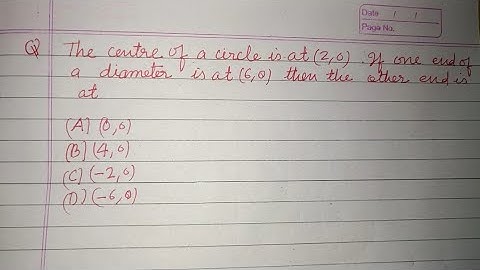 Date / /
Page No.
Q) The centre of a circle is at (2,0). If one end of
a diameter is at (6,0) then the other end is
at
(A) (0,0)
(B) (4,0)
(C) (-2,0)
(D) (-6,0)